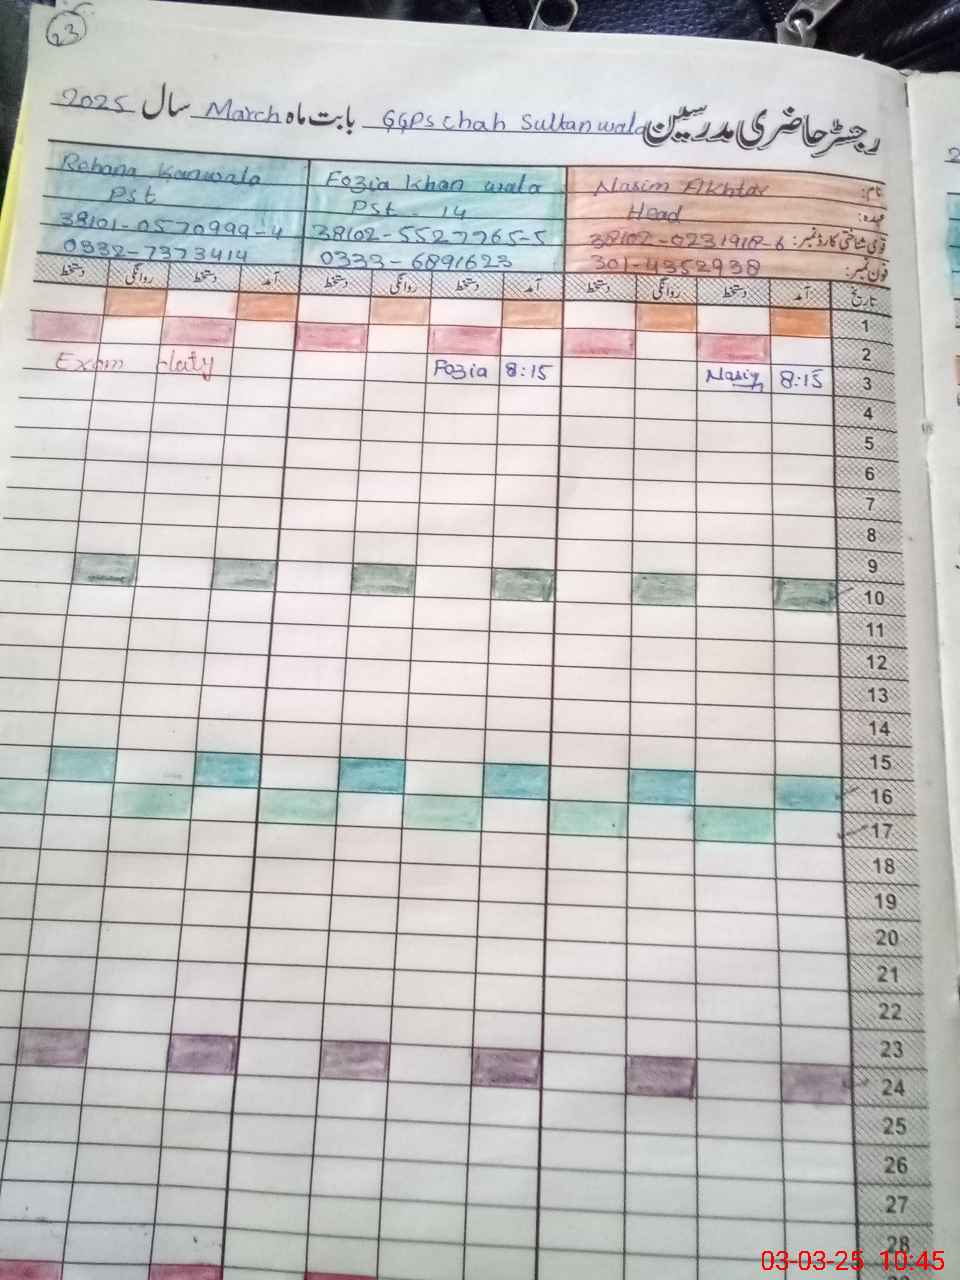 23
رجسٹر حاضری مدرسین GGPS Chah Sultan wala بابت ماہ March سال 2025
نام: Nasim Akhtar
Fozia Khan wala
Rehana Kanwala
عہدہ: Head
Pst - 14
Pst
قومی شناختی کارڈ نمبر: 38102-0231918-6
38102-5527765-5
38101-0570999-4
فون نمبر: 301-4352938
0333-6891623
0332-7373414
تاریخ آمد دستخط روانگی دستخط آمد دستخط روانگی دستخط آمد دستخط روانگی دستخط
1
2
3 8:15 Nasim 8:15 Fozia Exam duty
4
5
6
7
8
9
10
11
12
13
14
15
16
17
18
19
20
21
22
23
24
25
26
27
28
03-03-25 10:45